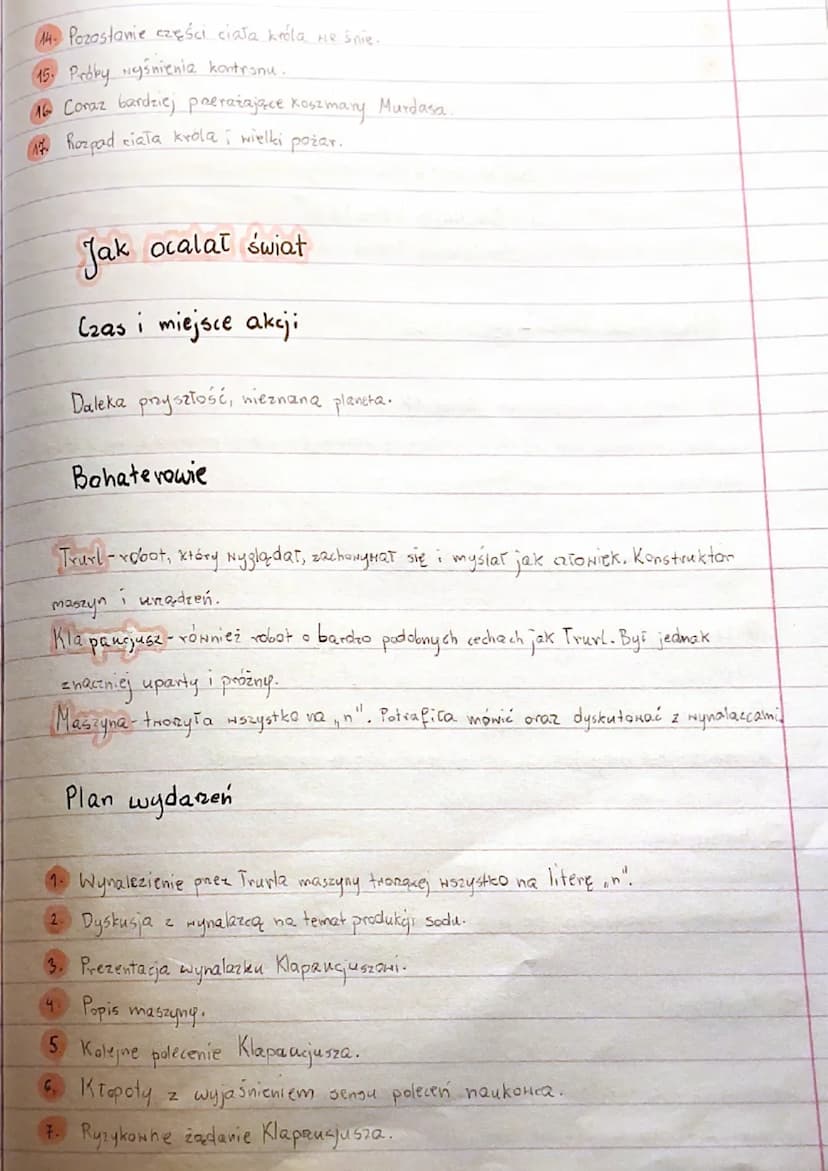 14. Pozostanie części ciała króla we śnie.
15. Próby wyśnienia kontrsnu.
16. Coraz bardziej przerażające koszmary Murdasa.
17. Rozpad ciała króla i wielki pożar.
Jak ocalał świat
Czas i miejsce akcji
Daleka przyszłość, nieznana planeta.
Bohaterowie
Trurl - robot, który wyglądał, zachowywał się i myślał jak człowiek. Konstruktor
maszyn i urządzeń.
Klapaucjusz - również robot o bardzo podobnych cechach jak Trurl. Był jednak
znaczniej uparty i próżny.
Maszyna - tworzyła wszystko na „n". Potrafiła mówić oraz dyskutować z wynalazcami
Plan wydarzeń
1. Wynalezienie przez Trurla maszyny tworzącej wszystko na literę „n".
2. Dyskusja z wynalazcą na temat produkcji sodu.
3. Prezentacja wynalazku Klapaucjuszowi.
4. Popis maszyny.
5. Kolejne polecenie Klapaucjusza.
6. Kłopoty z wyjaśnieniem sensu poleceń naukowca.
7. Ryzykowne żądanie Klapaucjusza.